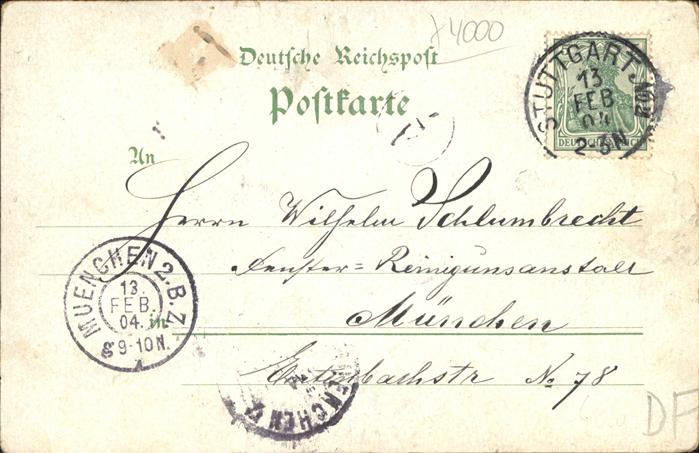 +4000
Deutsche Reichspost
Postkarte
STUTTGART
13
FEB
04
2-3N
DEUTSCHES REICH
An
Herrn Wilhelm Schlumbrecht
Fenster=Reinigunsanstalt
in München
No 78
MUENCHEN 2.B.Z.
13
FEB.
04.
9-10N.
DF